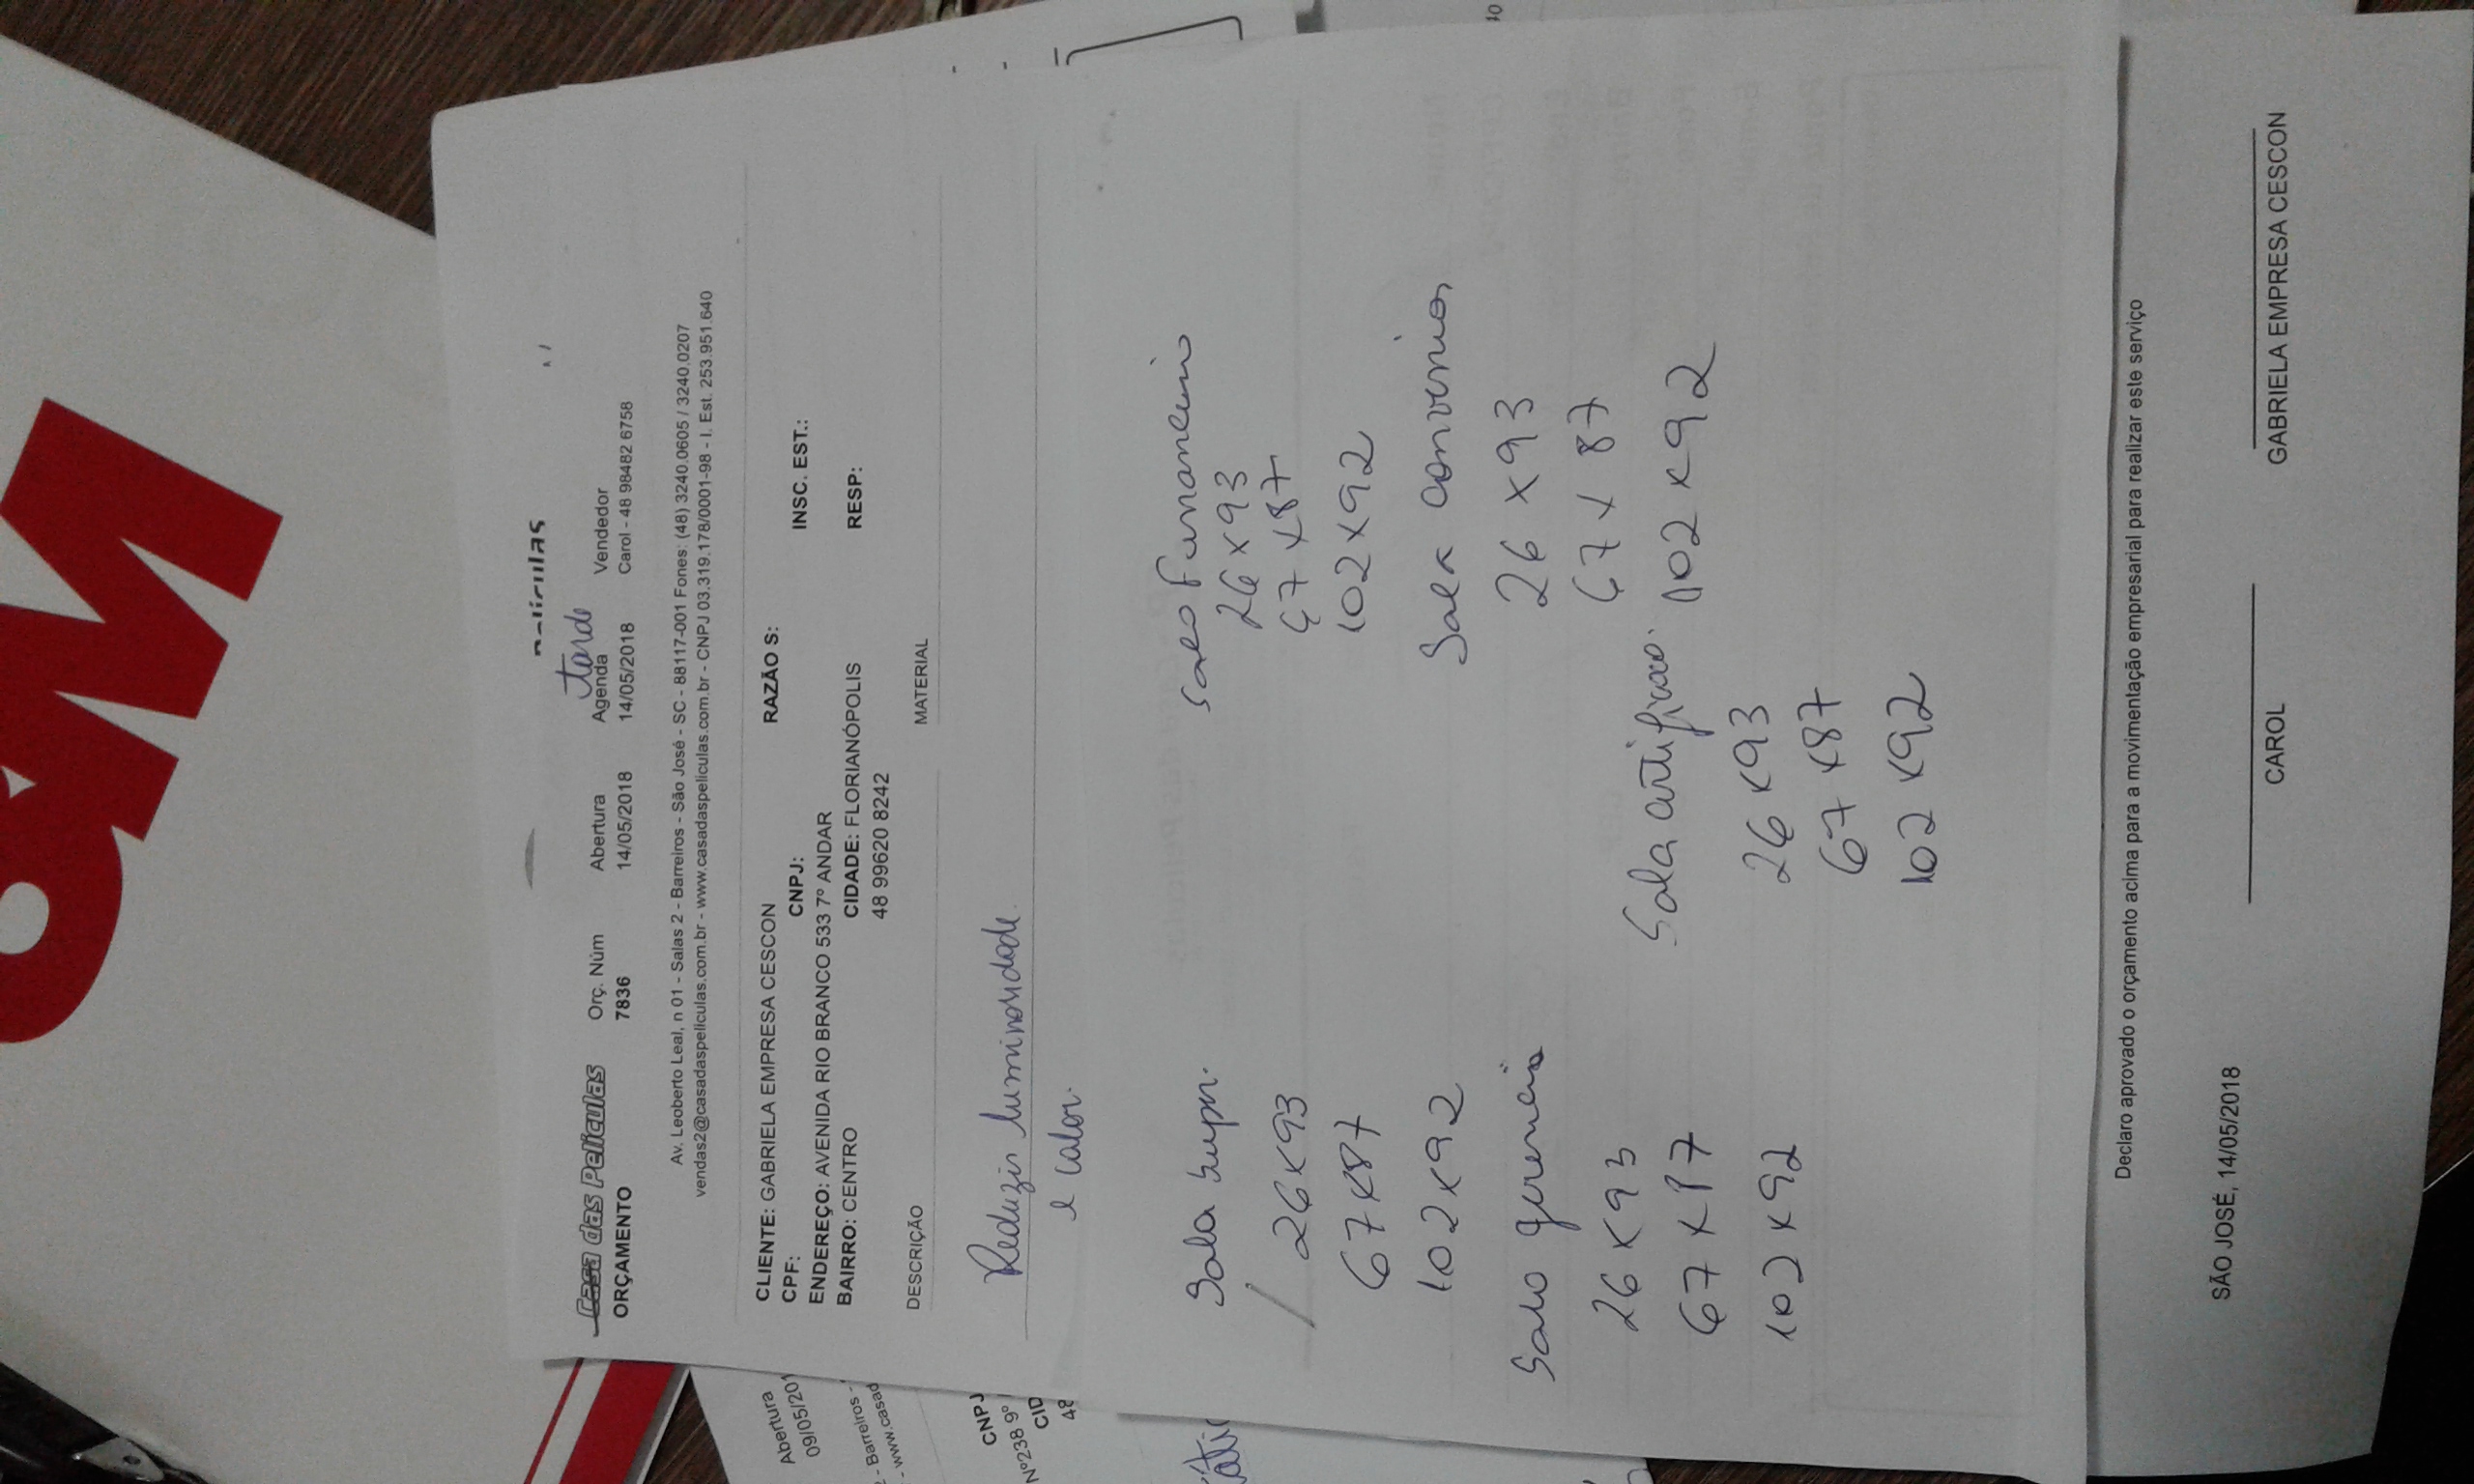 Casa das Películas
ORÇAMENTO
Orç. Núm
7836
Abertura
14/05/2018
tarde
Agenda
14/05/2018
Vendedor
Carol - 48 98482 6758
Av. Leoberto Leal, n 01 - Salas 2 - Barreiros - São José - SC - 88117-001 Fones: (48) 3240.0605 / 3240.0207
vendas2@casadaspeliculas.com.br - www.casadaspeliculas.com.br - CNPJ 03.319.178/0001-98 - I. Est. 253.951.640
CLIENTE: GABRIELA EMPRESA CESCON RAZÃO S:
CPF: CNPJ: INSC. EST.:
ENDEREÇO: AVENIDA RIO BRANCO 533 7º ANDAR
BAIRRO: CENTRO CIDADE: FLORIANÓPOLIS RESP:
48 99620 8242
DESCRIÇÃO MATERIAL
Reduzir luminosidade
e calor.
Sala Supr.
26x93
67x87
102x92
26x93
67x87
102x92
Sala gerencia
26x93
67x87
102x92
Sala convenios
26x93
67x87
102x92
Sala
26x93
67x87
102x92
Declaro aprovado o orçamento acima para a movimentação empresarial para realizar este serviço
SÃO JOSÉ, 14/05/2018
CAROL
GABRIELA EMPRESA CESCON
Abertura
09/05/201
- Barreiros -
- www.casad
CNPJ
Nº238 9º
CID
48